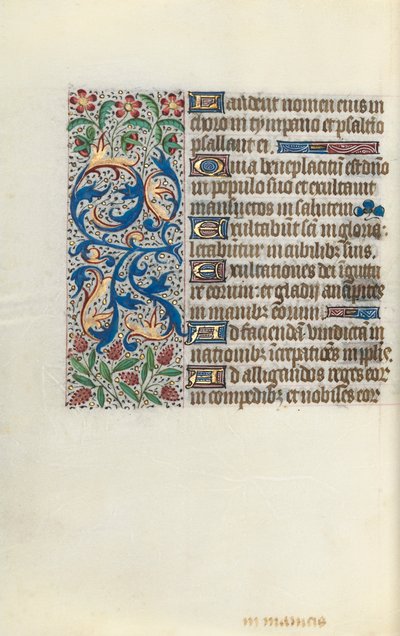 Laudent nomen eius in
choro in tympano et psalterio
psallant ei.
Quia beneplacitū est dn̄o
in populo suo et exultauit
mansuetos in salutem
Exultabūt sci in gloria:
letabūtur in cubilibȝ suis.
Exultationes dei ī guttu
re eorum: et gladij ancipites
in manibȝ eorum
Ad faciendā vindictā in
nationibȝ īcrepatiōes in pplis.
Ad alligandos reges eor
in compedibȝ et nobiles eor
in manicis